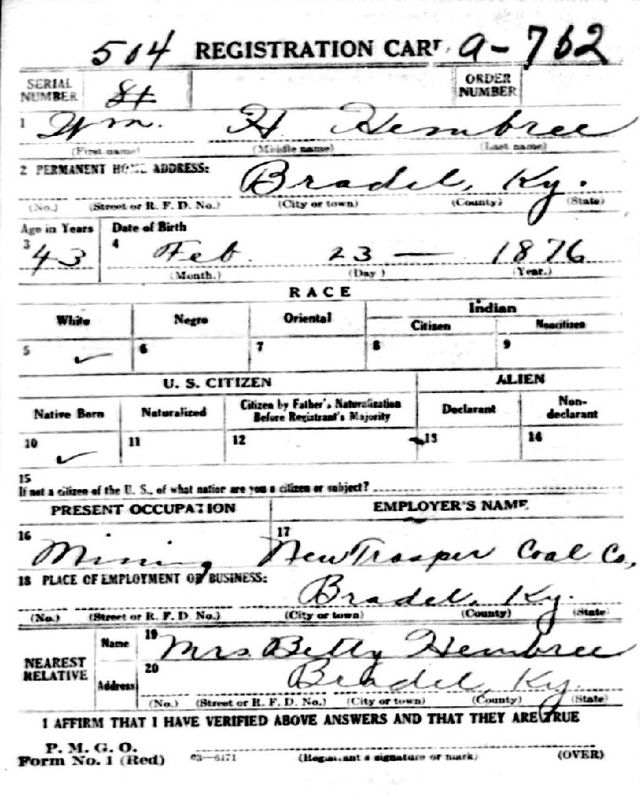 504 REGISTRATION CARD a-762
SERIAL NUMBER ORDER NUMBER
1 Wm. H Hembree
(First name) (Middle name) (Last name)
2 PERMANENT HOME ADDRESS:
Bradel, Ky.
(No.) (Street or R. F. D. No.) (City or town) (County) (State)
Age in Years Date of Birth
3 43 4 Feb. 23 — 1876
(Month.) (Day) (Year.)
RACE
White Negro Oriental Indian
Citizen Noncitizen
5 ✓ 6 7 8 9
U. S. CITIZEN ALIEN
Native Born Naturalized Citizen by Father's Naturalization Before Registrant's Majority Declarant Non-declarant
10 ✓ 11 12 13 14
15
If not a citizen of the U. S., of what nation are you a citizen or subject?
PRESENT OCCUPATION EMPLOYER'S NAME
16 Mining 17 New Trosper Coal Co,
18 PLACE OF EMPLOYMENT OR BUSINESS:
Bradel, Ky.
(No.) (Street or R. F. D. No.) (City or town) (County) (State)
NEAREST RELATIVE
Name 19 Mrs. Betty Hembree
Address 20 Bradel, Ky.
(No.) (Street or R. F. D. No.) (City or town) (County) (State)
I AFFIRM THAT I HAVE VERIFIED ABOVE ANSWERS AND THAT THEY ARE TRUE
P. M. G. O.
Form No. 1 (Red) 03—6171 (Registrant's signature or mark) (OVER)